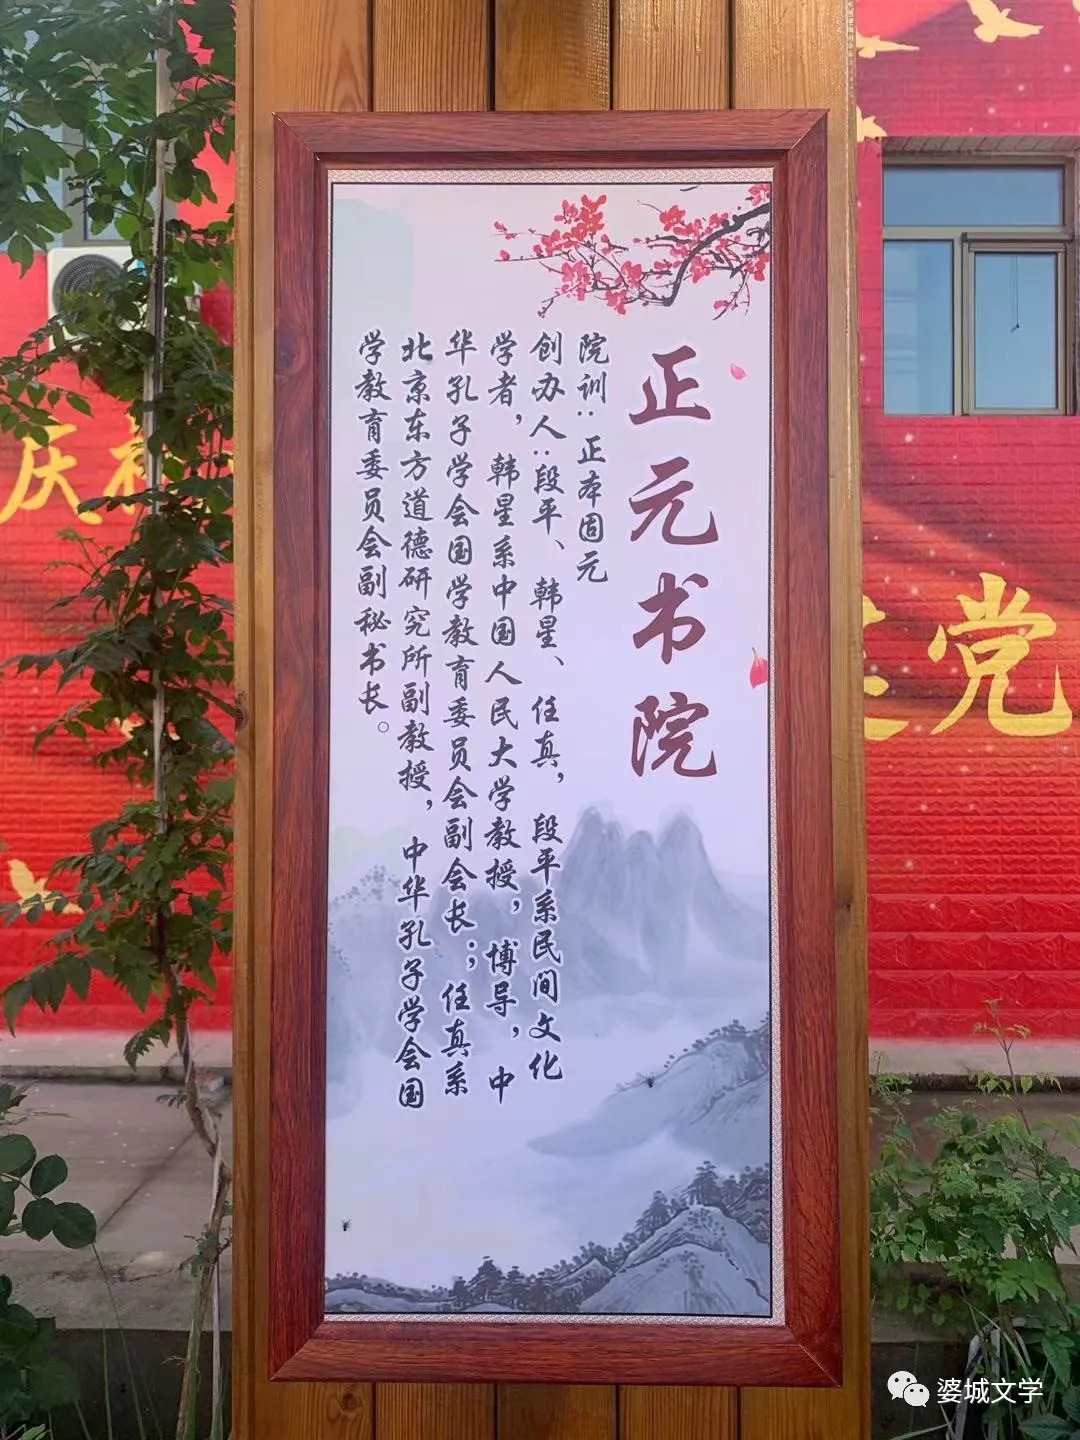 正元书院
院训：正本固元
创办人：段平、韩星、任真，段平系民间文化
学者，韩星系中国人民大学教授，博导，中
华孔子学会国学教育委员会副会长；任真系
北京东方道德研究所副教授，中华孔子学会国
学教育委员会副秘书长。
庆祝
建党
婺城文学